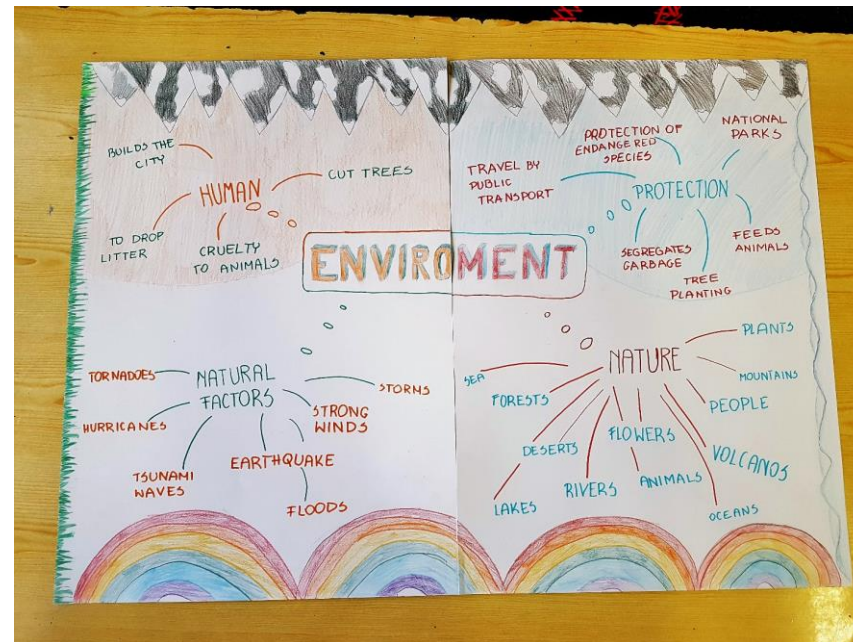 ENVIROMENT
HUMAN
BUILDS THE
CITY
CUT TREES
TO DROP
LITTER
CRUELTY
TO ANIMALS
PROTECTION
TRAVEL BY
PUBLIC
TRANSPORT
PROTECTION OF
ENDANGERED
SPECIES
NATIONAL
PARKS
SEGREGATES
GARBAGE
TREE
PLANTING
FEEDS
ANIMALS
NATURAL
FACTORS
TORNADOES
HURRICANES
TSUNAMI
WAVES
EARTHQUAKE
FLOODS
STRONG
WINDS
STORMS
NATURE
SEA
FORESTS
DESERTS
LAKES
RIVERS
FLOWERS
ANIMALS
OCEANS
VOLCANOS
PEOPLE
MOUNTAINS
PLANTS